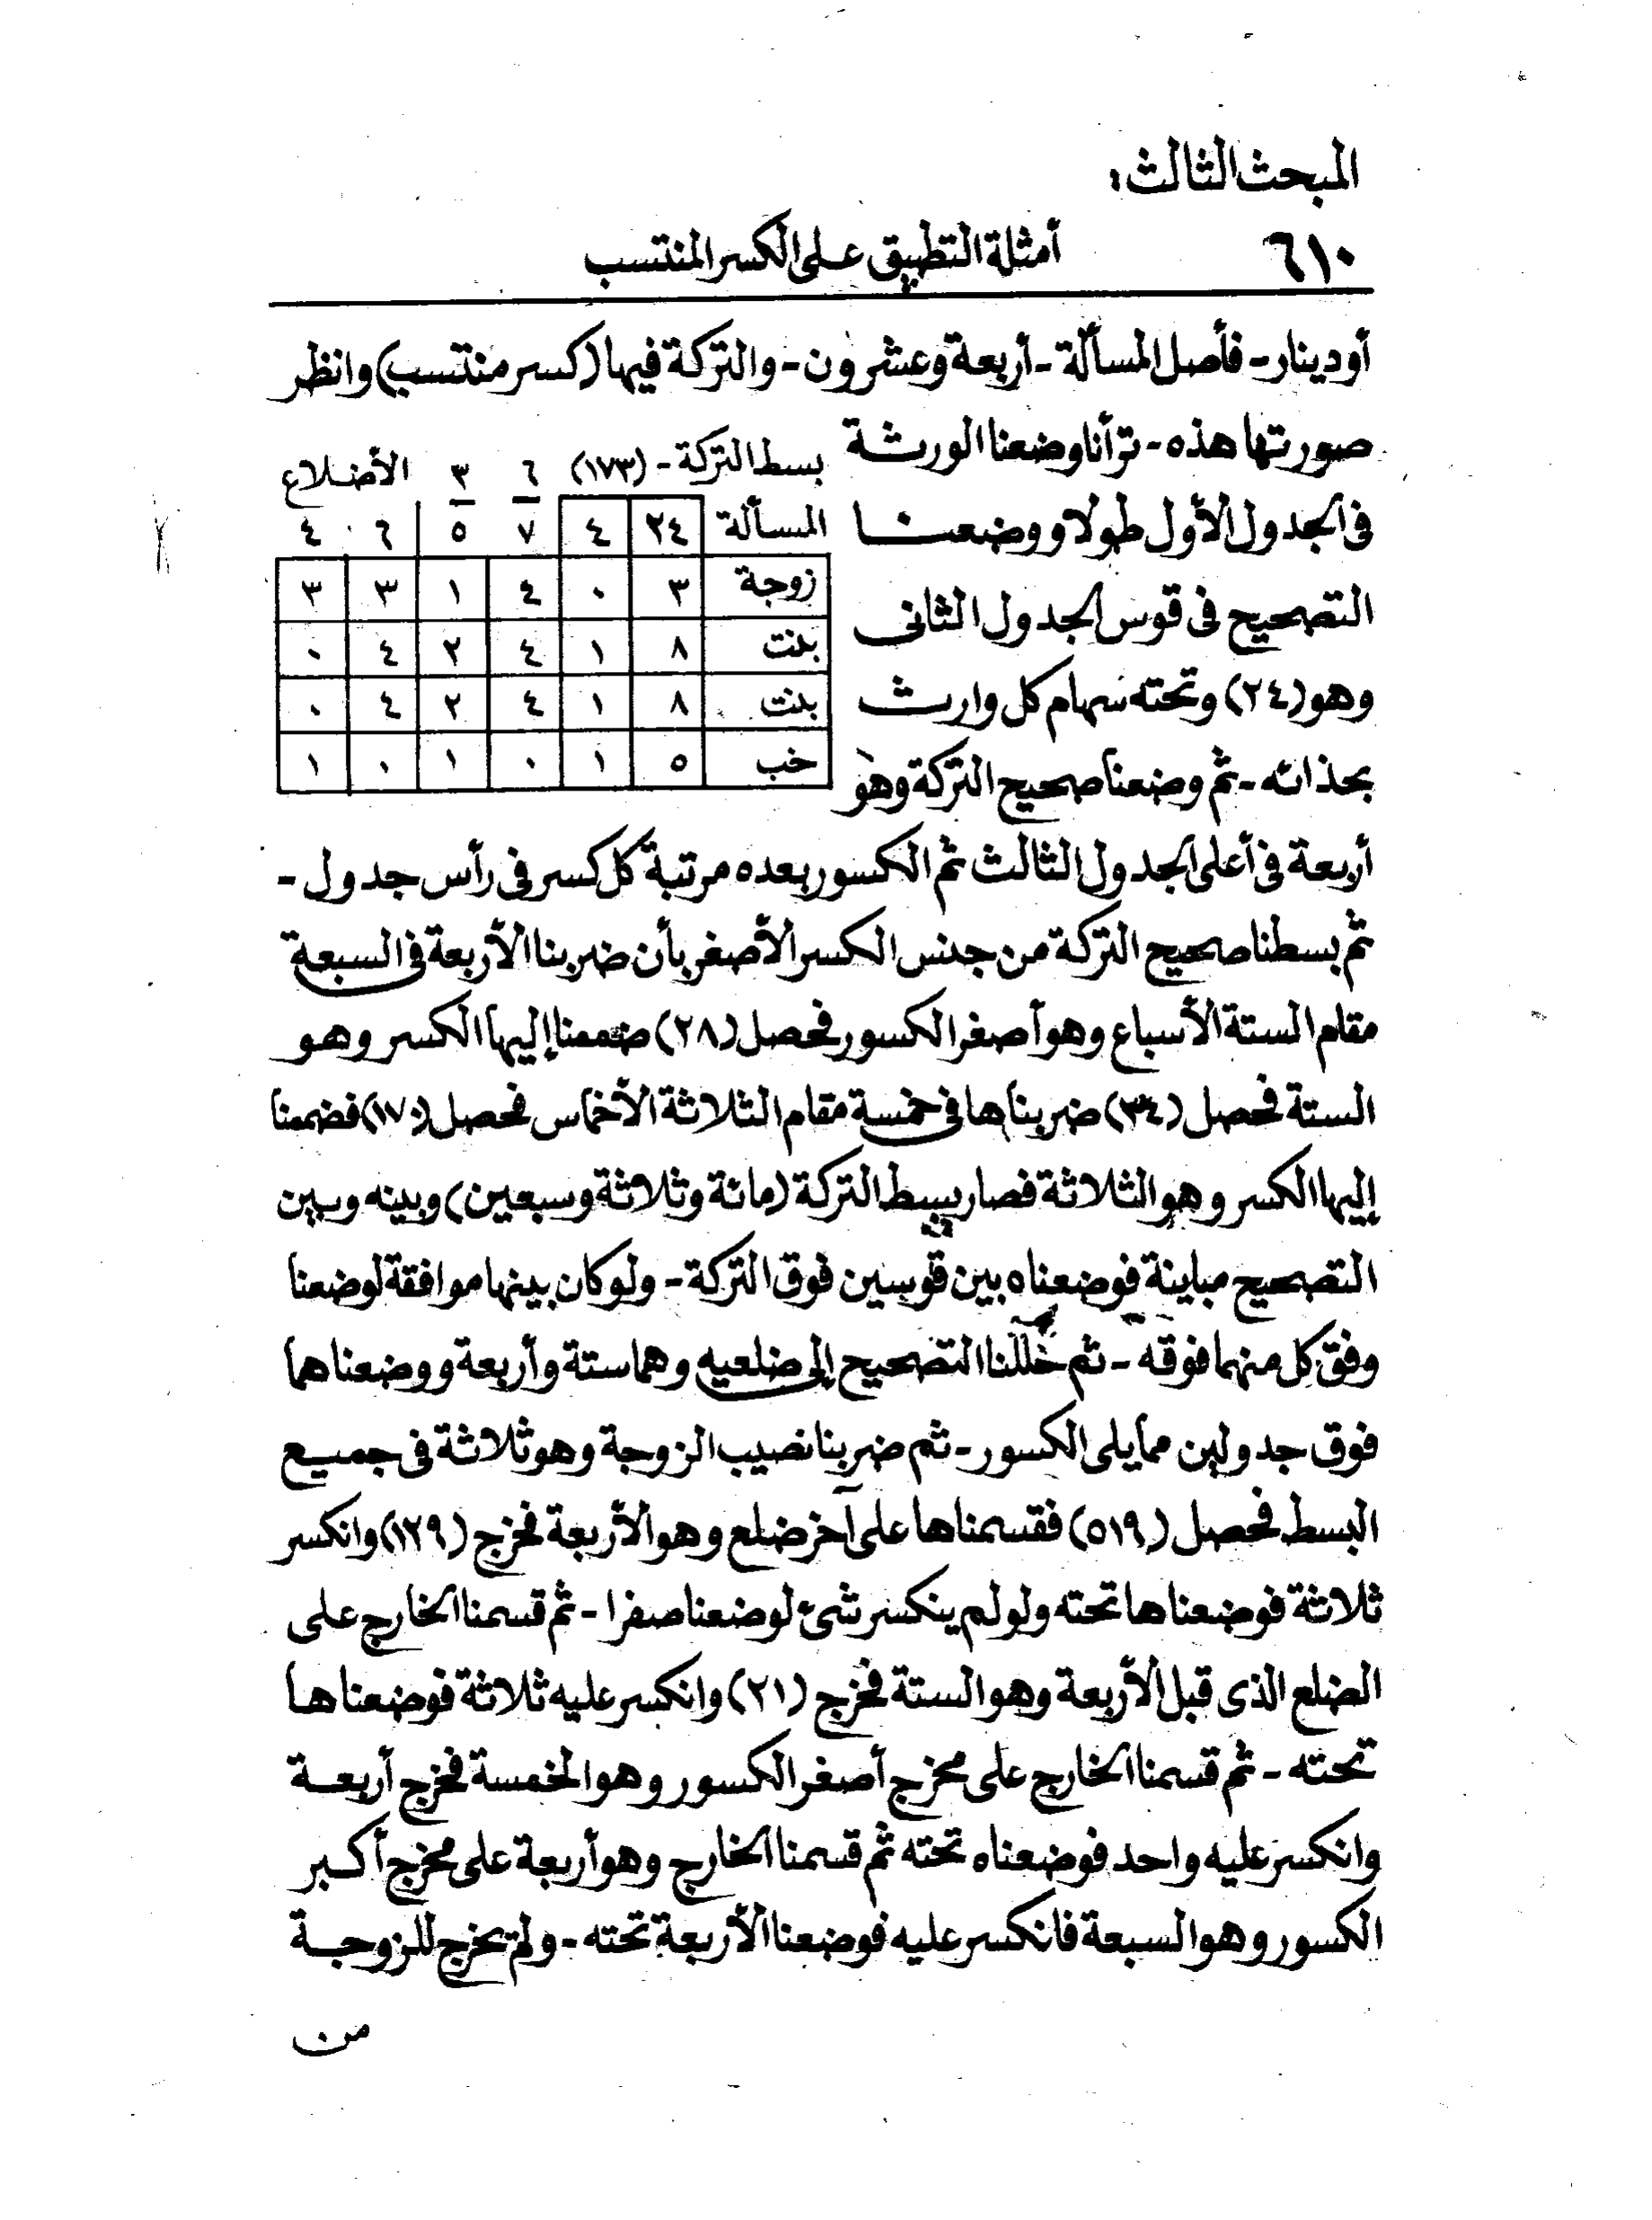 المبحث الثالث:
٦١٠ أمثلة التطبيق على الكسر المنتسب
أو دينار - فأصل المسألة - أربعة وعشرون - والتركة فيها (كسر منتسب) وانظر
صورتها هذه - تر أنا وضعنا الورثة
فى الجدول الأول طولا ووضعنا
التصحيح فى قوس الجدول الثانى
وهو (٢٤) وتحته سهام كل وارث
بحذائه - ثم وضعنا صحيح التركة وهو
بسط التركة - (١٧٣) ٦ ٣ الأضلاع
المسألة ٢٤ ٤ ٧ ٥ ٦ ٤
زوجة ٣ ٠ ٤ ١ ٣ ٣
بنت ٨ ١ ٤ ٢ ٤ ٠
بنت ٨ ١ ٤ ٢ ٤ ٠
خب ٥ ١ ٠ ١ ٠ ١
أربعة فى أعلى الجدول الثالث ثم الكسور بعده مرتبة كل كسر فى رأس جدول -
ثم بسطنا صحيح التركة من جنس الكسر الأصغر بأن ضربنا الأربعة فى السبعة
مقام الستة الأسباع وهو أصغر الكسور فحصل (٢٨) ضممنا إليها الكسر وهو
الستة فحصل (٣٤) ضربناها فى خمسة مقام الثلاثة الأخماس فحصل (١٧٠) فضممنا
إليها الكسر وهو الثلاثة فصار بسط التركة (مائة وثلاثة وسبعين) وبينه وبين
التصحيح مباينة فوضعناه بين قوسين فوق التركة - ولو كان بينهما موافقة لوضعنا
وفق كل منهما فوقه - ثم حللنا التصحيح إلى ضلعيه وهما ستة وأربعة ووضعناهما
فوق جدولين مما يلى الكسور - ثم ضربنا نصيب الزوجة وهو ثلاثة فى جميع
البسط فحصل (٥١٩) فقسمناها على آخر ضلع وهو الأربعة فخرج (١٢٩) وانكسر
ثلاثة فوضعناها تحته ولو لم ينكسر شئ لوضعنا صفرا - ثم قسمنا الخارج على
الضلع الذى قبل الأربعة وهو الستة فخرج (٢١) وانكسر عليه ثلاثة فوضعناها
تحته - ثم قسمنا الخارج على مخرج أصغر الكسور وهو الخمسة فخرج أربعة
وانكسر عليه واحد فوضعناه تحته ثم قسمنا الخارج وهو أربعة على مخرج أكبر
الكسور وهو السبعة فانكسر عليه فوضعنا الأربعة تحته - ولم يخرج للزوجة
من